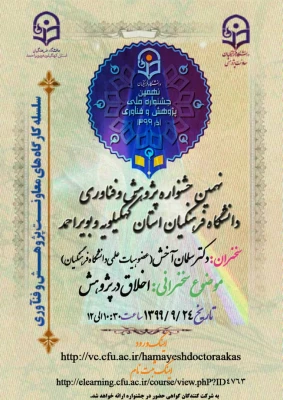 دانشگاه فرهنگیان
نهمین
جشنواره ملی
پژوهش و فناوری
آذر ۱۳۹۹
سلسله کارگاه‌های معاونت پژوهشی و فناوری
نهمین جشنواره پژوهش و فناوری
دانشگاه فرهنگیان استان کهگیلویه و بویراحمد
سخنران: دکتر سلمان آخش (عضو هیات علمی دانشگاه فرهنگیان)
موضوع سخنرانی: اخلاق در پژوهش
تاریخ ۱۳۹۹/۹/۲۴ ساعت ۱۰:۳۰ الی ۱۲
لینک ورود
http://vc.cfu.ac.ir/hamayeshdoctoraakas
لینک ثبت نام
http://elearning.cfu.ac.ir/course/view.php?ID=4763
به شرکت کنندگان گواهی حضور در جشنواره ارائه خواهد شد.